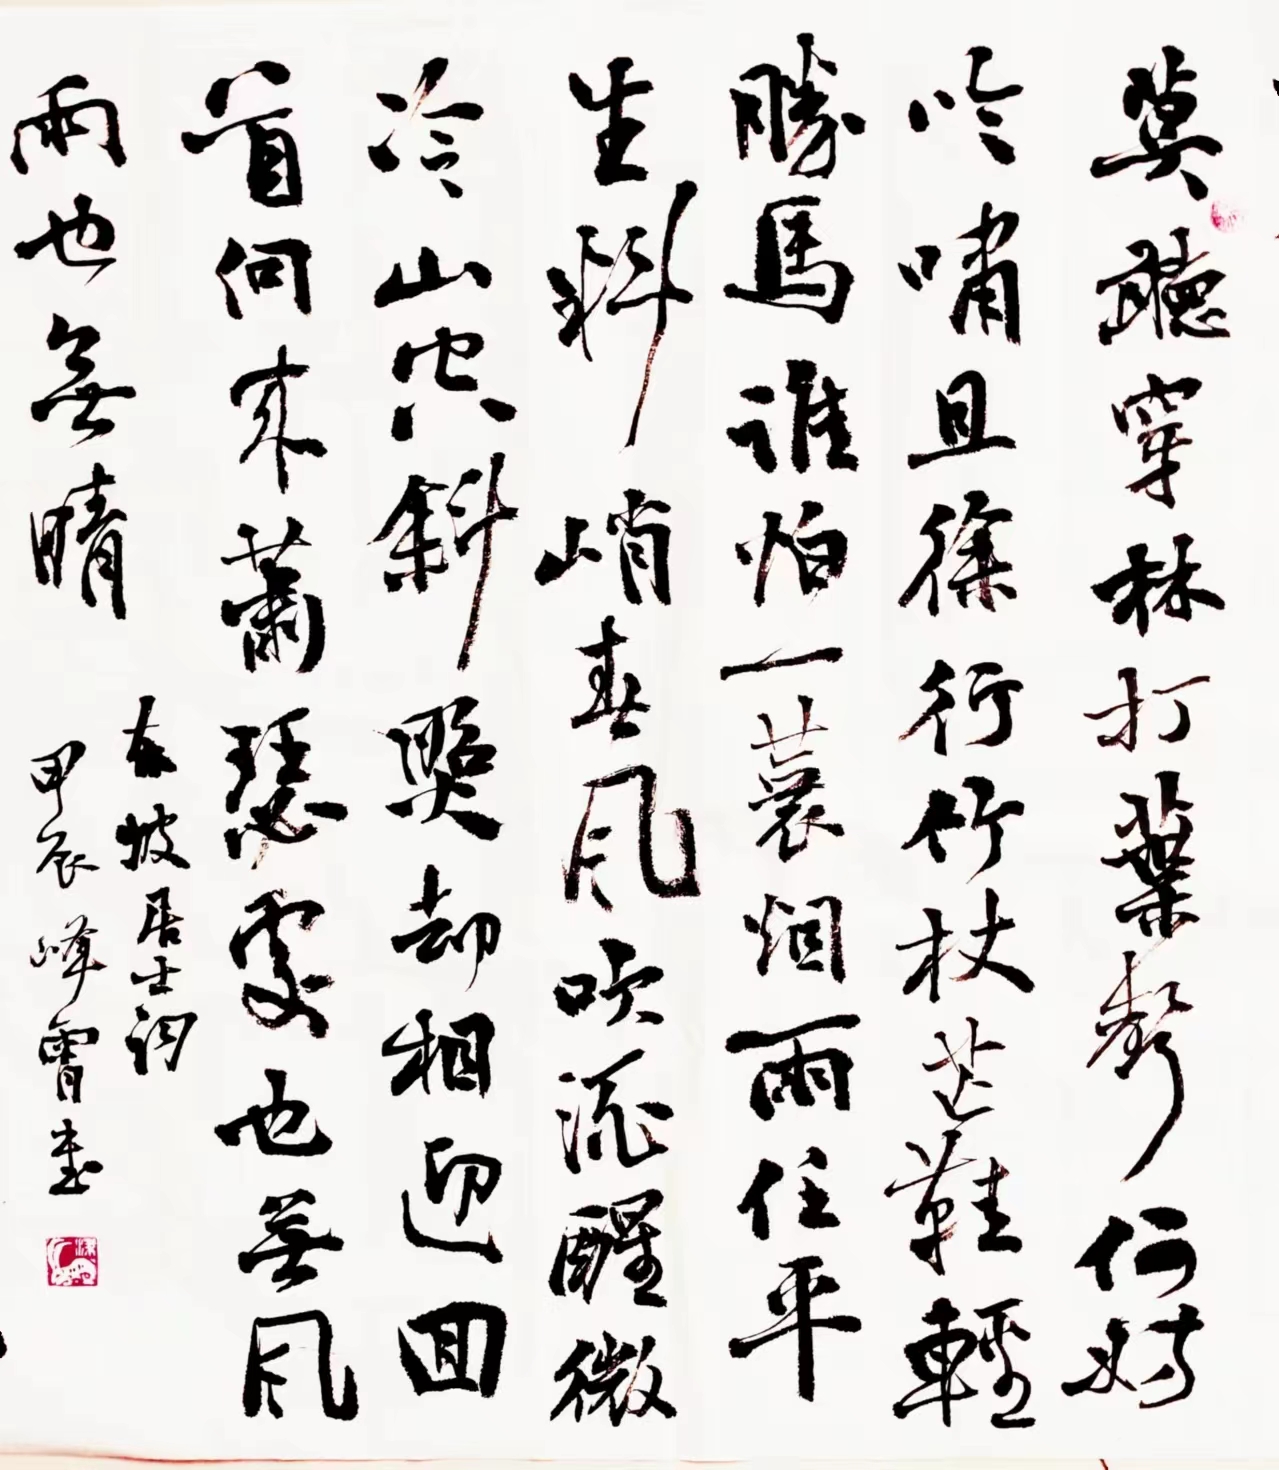 莫聽穿林打葉聲何妨
吟嘯且徐行竹杖芒鞋輕
勝馬誰怕一蓑烟雨任平
生料峭春风吹酒醒微
冷山头斜照却相迎回
首向来蕭瑟處也無风
雨也無晴
东坡居士詞
甲辰峰書